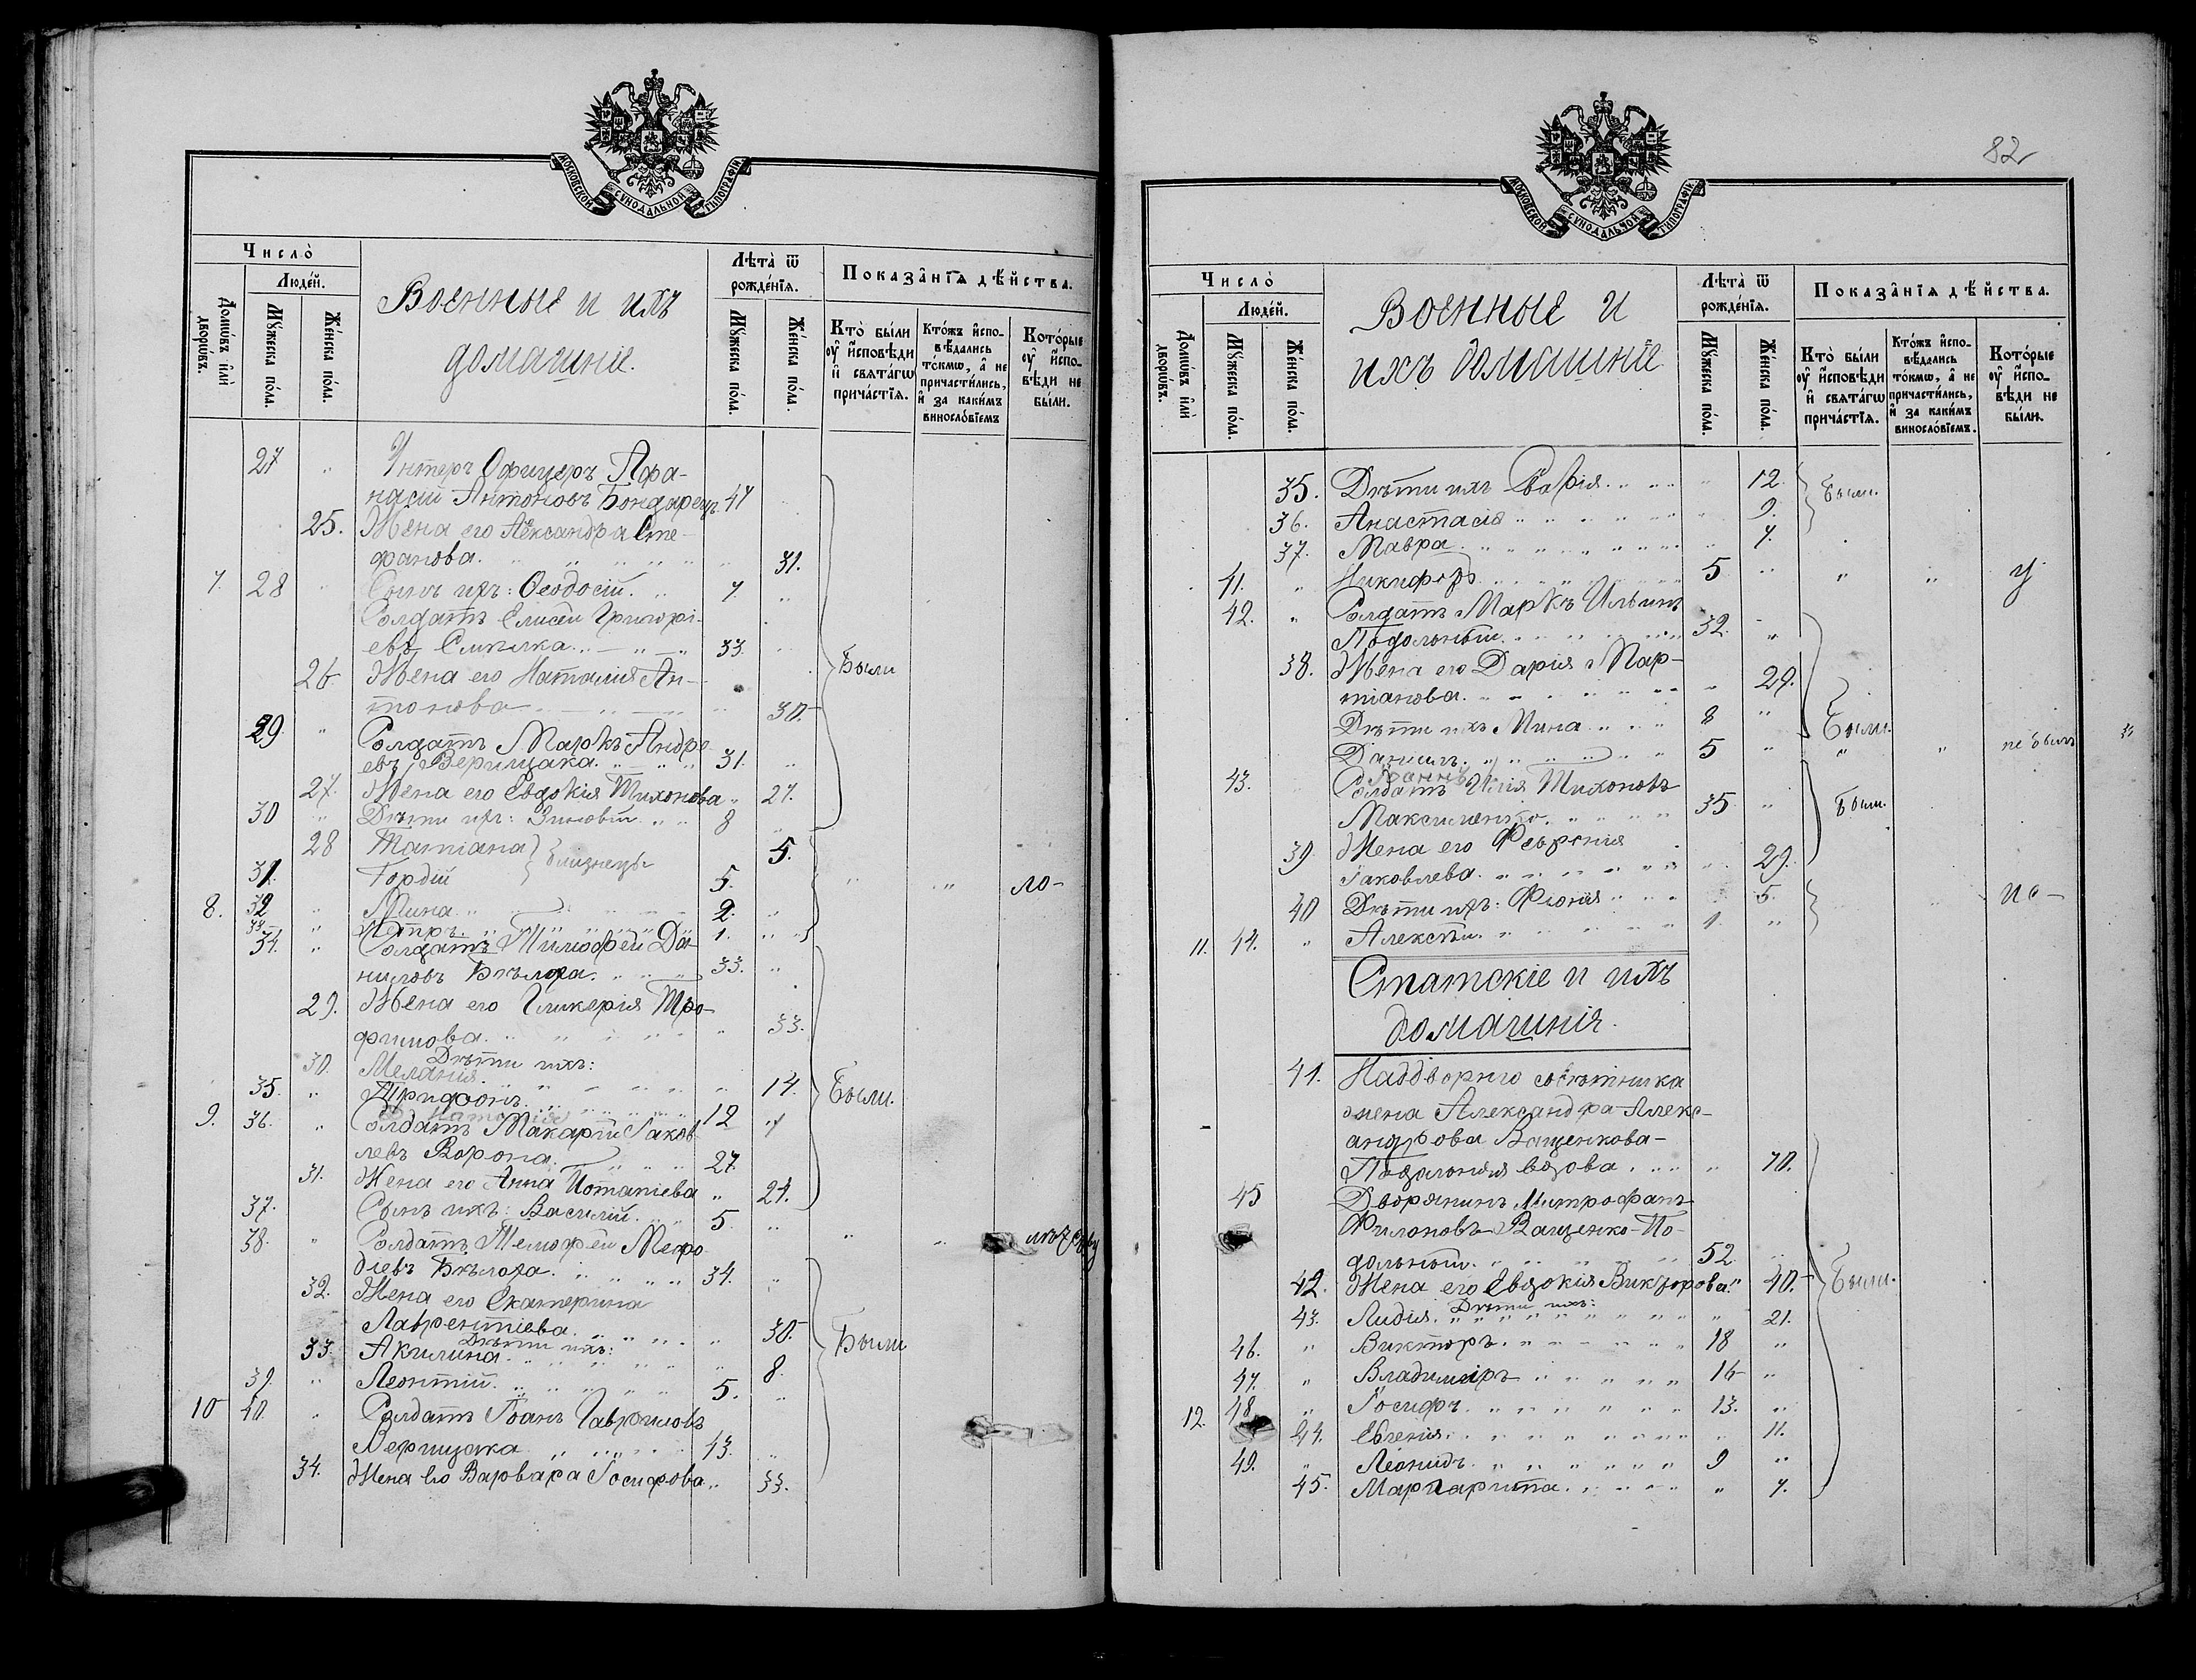 МОСКОВСКОЙ СУНОДАЛЬНОЙ ТИПОГРАФІИ
Число̀
Людей.
Домѡвъ и҆лѝ дворѡвъ.
Мꙋжеска по́ла.
Же́нска по́ла.
Военные и ихъ
домашніе.
Лѣта̀ ѿ рожде́нїѧ.
Мꙋжеска по́ла.
Же́нска по́ла.
Показа̂нїѧ дѣ́йства.
Кто̀ бы́ли ᲂу҆ и҆́сповѣди и҆ свѧта́гѡ прича́стїѧ.
Кто́жъ и҆спо-вѣ́дались то́кмѡ, а҆ не причасти́лись, и҆ за каки́мъ виносло́вїемъ
Кото́рые ᲂу҆ и҆спо-вѣди не бы́ли.
27 " Унтеръ Офицеръ Афа-
насій Антоновъ Бондарецъ 47
25. Жена его Александра Сте-
фанова. " 31.
7. 28 " Сынъ ихъ: Ѳеодосій. 7 "
Солдатъ Елисей Григорі-
евъ 33.
26 Жена его Наталія Ан-
тонова 30.
29 " Солдатъ Маркъ Андре
евъ Верещака. 31. "
27. Жена его Евдокія Тихонова " 27.
30 " Дѣти ихъ: Зиновій. 8 "
28 Татіана } близнецы 5.
31. Гордій 5.
8. 32 " Мина. 2. "
33 " Петръ. 1. "
34. " Солдатъ Тимофей Да-
ниловъ Бѣлоха. 33. "
29. Жена его Гликерія Тро-
фимова. " 33.
Дѣти ихъ:
30. Меланія. " 14.
35. " Трифонъ. 12 "
9. 36. " Солдатъ Макарій Іаков
левъ Ворона. 27.
31. Жена его Анна Потапіева " 24.
37. Сынъ ихъ: Василій. 5. "
38. " Солдатъ Мефо
діевъ Бѣлоха. 34. "
32. Жена его Екатерина
Лаврентіева. " 30.
Дѣти ихъ:
33. Акилина. " 8.
39. " Леонтій. 5. "
10 40. " Солдатъ Іоанъ Гавриловъ
Верещака 43. "
34. Жена его Варвара Іосифова " 33.
Были
Были.
Были
82
МОСКОВСКОЙ СУНОДАЛЬНОЙ ТИПОГРАФІИ
Число̀
Людей.
Домѡвъ и҆лѝ дворѡвъ.
Мꙋжеска по́ла.
Же́нска по́ла.
Военные и
ихъ домашніе
Лѣта̀ ѿ рожде́нїѧ.
Мꙋжеска по́ла.
Же́нска по́ла.
Показа̂нїѧ дѣ́йства.
Кто̀ бы́ли ᲂу҆ и҆́сповѣди и҆ свѧта́гѡ прича́стїѧ.
Кто́жъ и҆спо-вѣ́дались то́кмѡ, а҆ не причасти́лись, и҆ за каки́мъ виносло́вїемъ.
Кото́рые ᲂу҆ и҆спо-вѣди не бы́ли.
35. Дѣти ихъ Софія. " 12.
36. Анастасія " 9.
37. Мавра. " 7.
41. " Никифоръ 5 "
42. " Солдатъ Маркъ Ильинъ
Подольный. 32. "
38. Жена его Дарія Мар-
тіанова. " 29.
Дѣти ихъ Мина 8 "
Даніилъ. 5 "
43. Солдатъ Илія Тихоновъ
Максименко. 35 "
39. Жена его Февронія
Іаковлева. " 29.
40 Дѣти ихъ: 5.
11. 44. " Алексѣй. 1. "
Были.
Были.
не былъ
Были.
Статскіе и ихъ
домашнія.
41. Надворнго совѣтника
жена Александра Алекс-
андрова Ващенкова-
Подольная вдова. " 70.
45 Дворянинъ Митрофанъ
Филоновъ Ващенко-По-
дольный 52
42. Жена его Евдокія Викторова " 40.
Дѣти ихъ:
43. Лидія. " 21.
46. " Викторъ. 18 "
47. " Владиміръ 16 "
12. 48. " Іосифъ. 13. "
44. Евгенія. " 11.
49. " Леонидъ. 9 "
45. Маргарита. " 7.
Были.